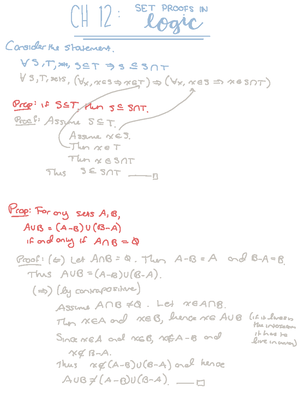 CH 12: SET PROOFS IN
logic
Consider the statement,
∀ S,T, S⊆T ⇒ S ⊆ S∩T
∀ S,T, (∀x, x∈S ⇒ x∈T) ⇒ (∀x, x∈S ⇒ x∈S∩T)
Prop: if S⊆T, then S ⊆ S∩T.
Proof: Assume S⊆T.
Assume x∈S.
Then x∈T
Then x∈S∩T
Thus S⊆S∩T
Prop: For any sets A,B,
A∪B = (A-B)∪(B-A)
if and only if A∩B = ∅
Proof: (⇐) Let A∩B = ∅. Then A-B=A and B-A=B.
Thus A∪B = (A-B)∪(B-A).
(⇒) (by contrapositive)
Assume A∩B ≠ ∅. Let x∈A∩B.
Then x∈A and x∈B, hence x∈A∪B
(if it lives in
the intersection
it has to be
live in union)
Since x∈A and x∈B, x∉A-B and
x∉B-A.
Thus x∉(A-B)∪(B-A) and hence
A∪B ≠ (A-B)∪(B-A).